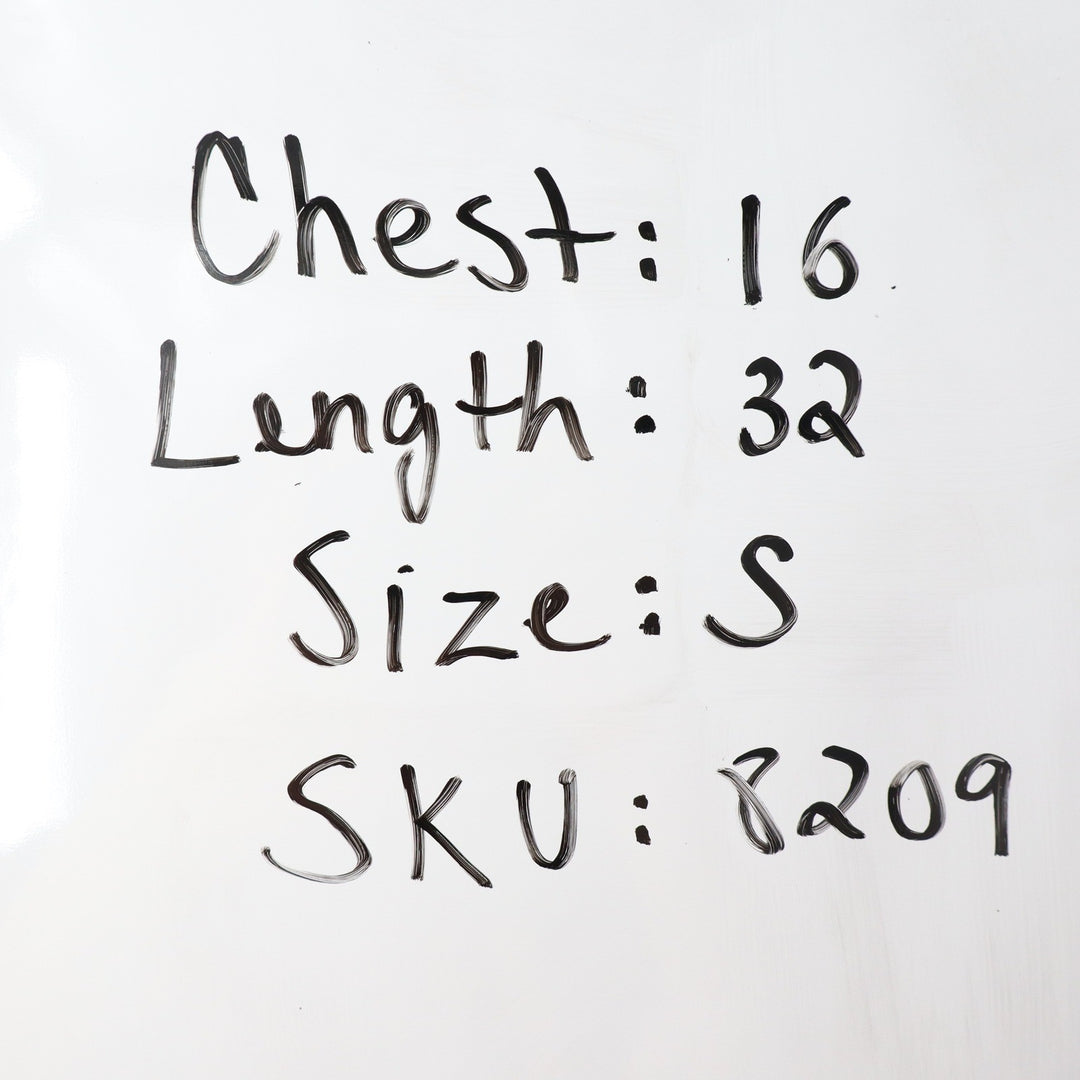 Chest: 16
Length: 32
Size: S
SKU: 8209